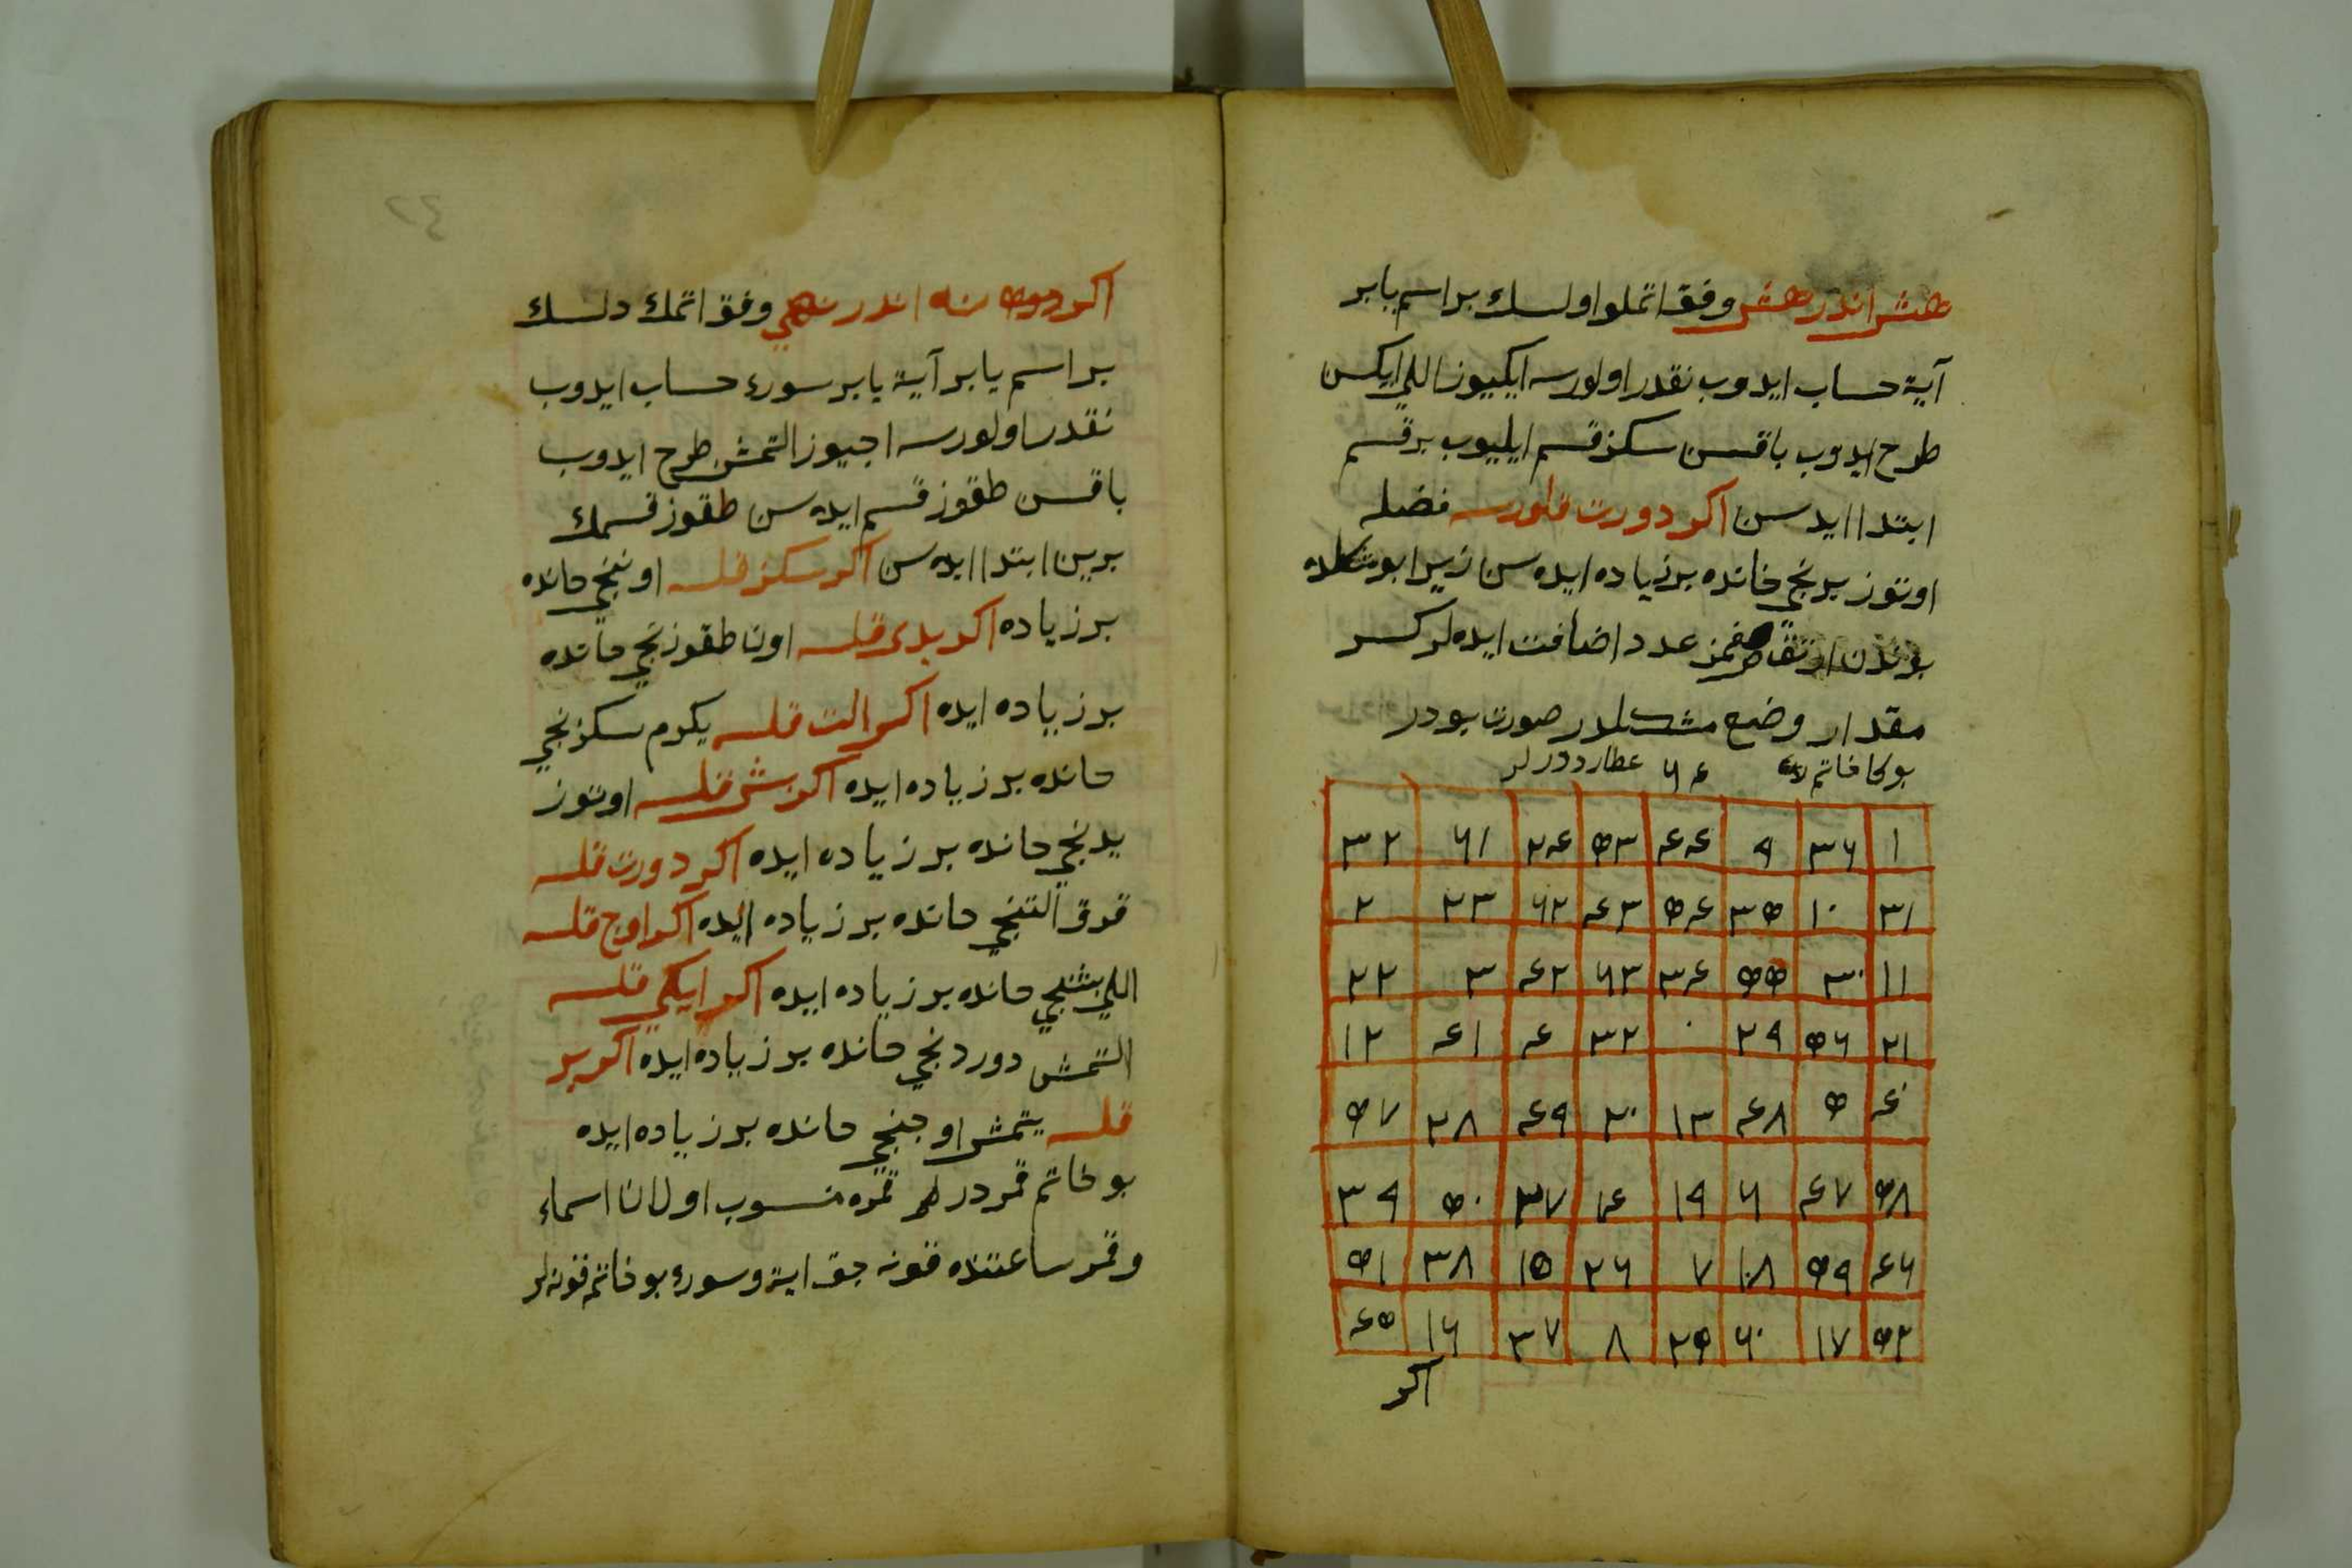 هشت اندر هشت وفق اتملو اولسك بر اسم يا بر
آية حساب ايدوب نقدر اولورسه ايكيوز اللي ايكسن
طرح ايدوب باقسن سكز قسم ايليوب بر قسم
ابتدا ايد سن اكر دورت قلورسه فضله
اوتوز برنجي خانده بر زياده ايده سن زيرا بو شكلده
بوندن ارتق عدد اضافت ايده لر كسر
مقدار وضع مشكلدر صورت بودر
بوكا خاتم عطارد درلر
١ ٣٦ ٩ ٤٤ ٥٣ ٢٤ ٦١ ٣٢
٣١ ١٠ ٣٥ ٥٤ ٤٣ ٦٢ ٢٣ ٢
١١ ٣٠ ٥٥ ٣٤ ٦٣ ٤٢ ٣ ٢٢
٢١ ٥٦ ٢٩ ٠ ٣٢ ٤ ٤١ ١٢
٤٠ ٥ ٤٨ ١٣ ٢٠ ٤٩ ٢٨ ٥٧
٥٨ ٤٧ ٦ ١٩ ١٤ ٣٧ ٥٠ ٣٩
٤٦ ٥٩ ١٨ ٧ ٢٦ ١٥ ٣٨ ٥١
٥٢ ١٧ ٦٠ ٢٥ ٨ ٣٧ ١٦ ٤٥
اكر
٤٢
اكر نه اندر نهي وفق اتمك دلسك
بر اسم يا بر آية يا بر سوره حساب ايدوب
نقدر اولورسه اجيوز التمش طرح ايدوب
باقسن طقوز قسم ايده سن طقوز قسمك
برين ابتدا ايده سن اكر سكز قلسه اوننجي خانده
بر زياده اكر يدى قلسه اون طقوزنجي خانده
بر زياده ايده اكر الت قلسه يكرم سكزنجي
خانده بر زياده ايده اكر بش قلسه اوتوز
يدنجي خانده بر زياده ايده اكر دورت قلسه
قرق التنجي خانده بر زياده ايده اكر اوج قلسه
اللي بشنجي خانده بر زياده ايده اكر ايكي قلسه
التمش دوردنجي خانده بر زياده ايده اكر بر
قلسه يتمش اوجنجي خانده بر زياده ايده
بو خاتم قمردر قمره منسوب اولان اسماء
وقمر ساعتنده قونه جق اية وسوره بو خاتم قونه لر